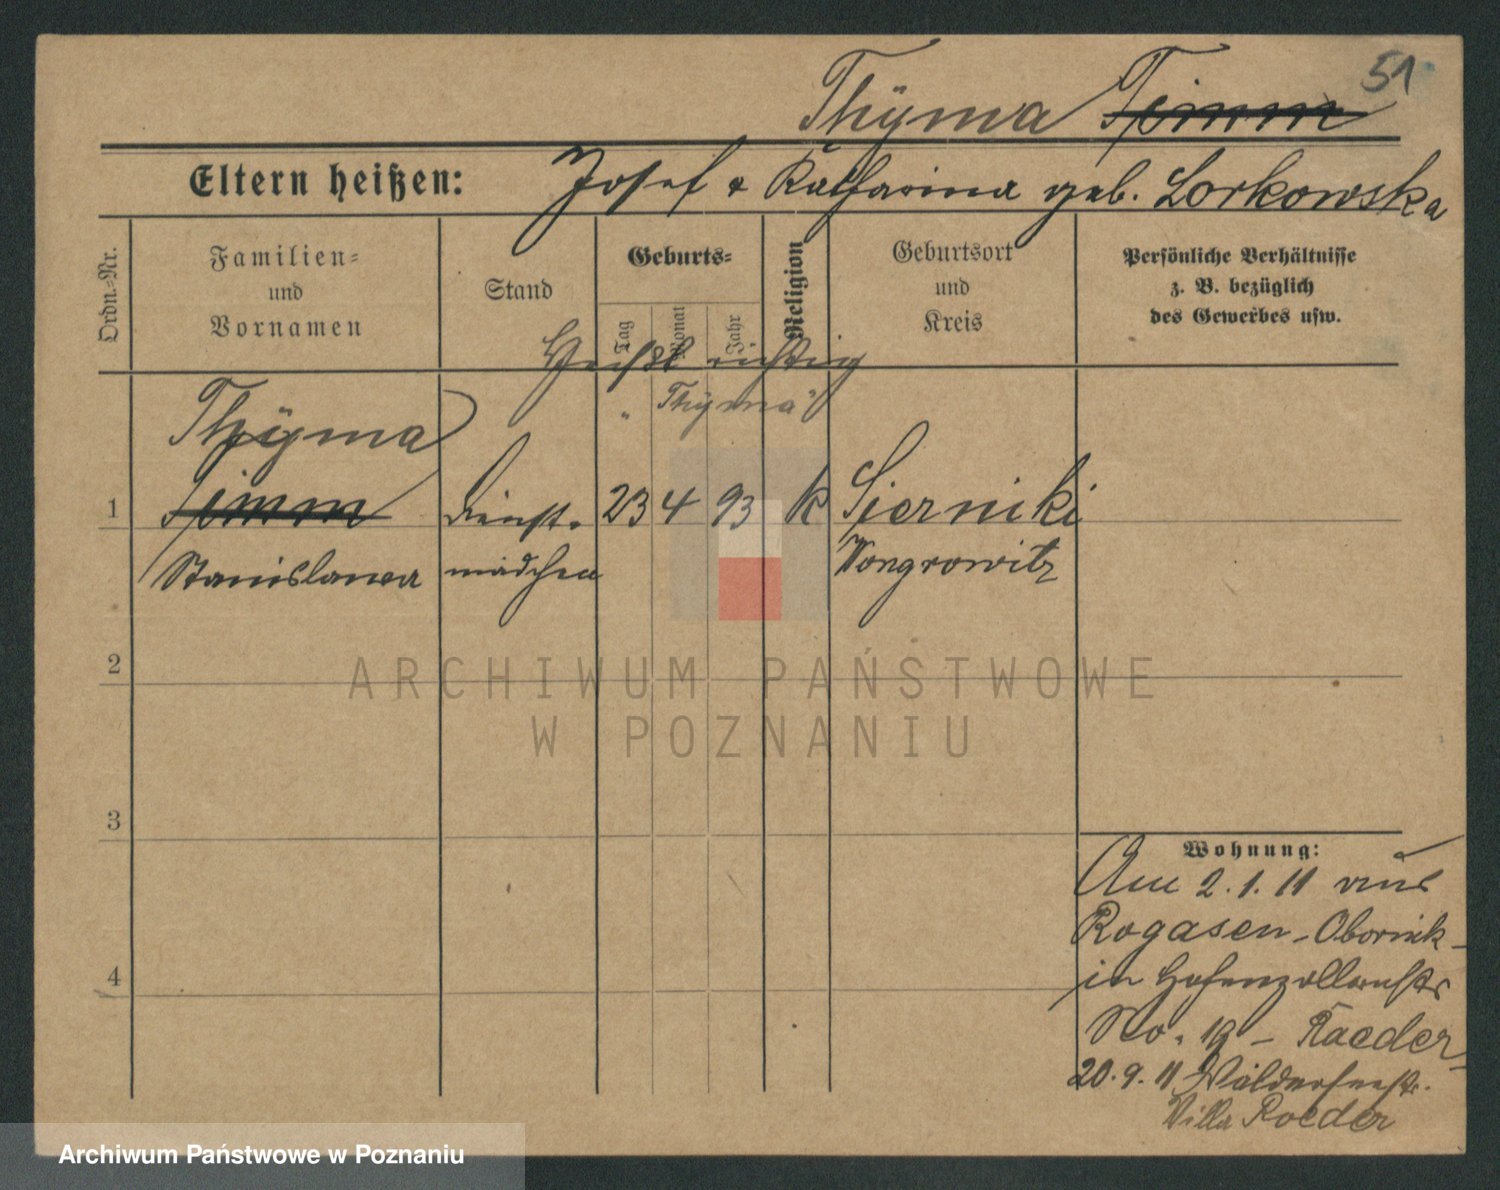 51
Thÿma Timm
Eltern heißen: Josef & Katharina geb. Lorkowska
Ordn.=Nr.
Familien=
und
Vornamen
Stand
Geburts=
Tag
Monat
Jahr
Religion
Geburtsort
und
Kreis
Persönliche Verhältnisse
z. B. bezüglich
des Gewerbes usw.
Heißt richtig
"Thÿma"
Thÿma
1 Timm Dienst- 23 4 93 k Sierniki
Stanislawa mädchen Wongrowitz
2
3
4
Wohnung:
Am 2.1.11 aus
Rogasen-Obornik-
in Hohenzollernstr
No. 19 - Raeder
20.9.11
Villa Roeder
ARCHIWUM PAŃSTWOWE
W POZNANIU
Archiwum Państwowe w Poznaniu